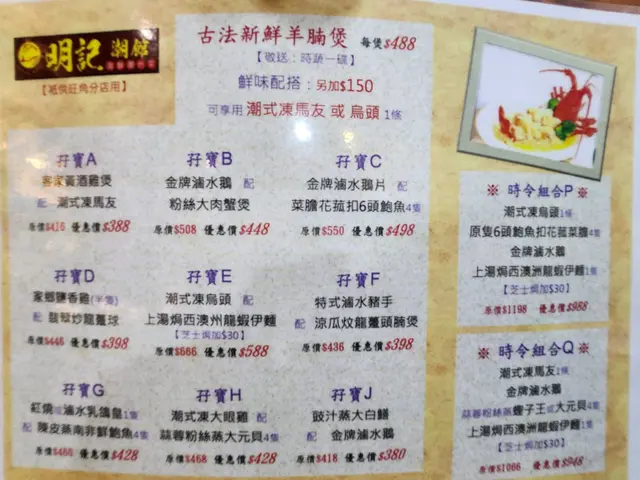 明記 潮館
【祗供旺角分店用】
古法新鮮羊腩煲 每煲$488
【敬送：時蔬一碟】
鮮味配搭：另加$150
可享用 潮式凍馬友 或 烏頭 1條
孖寶A
客家黃酒雞煲
配 潮式凍馬友
原價$416 優惠價$388
孖寶B
金牌滷水鵝 配
粉絲大肉蟹煲
原價$508 優惠價$448
孖寶C
金牌滷水鵝片 配
菜膽花菰扣6頭鮑魚4隻
原價$550 優惠價$498
孖寶D
家鄉鹽香雞(半隻)
配 翡翠炒龍躉球
原價$446 優惠價$398
孖寶E
潮式凍烏頭 配
上湯焗西澳州龍蝦伊麵
【芝士焗加$30】
原價$666 優惠價$588
孖寶F
特式滷水豬手
配 涼瓜炆龍躉頭腩煲
原價$436 優惠價$398
孖寶G
紅燒或滷水乳鴿皇1隻
配 陳皮蒸南非鮮鮑魚4隻
原價$466 優惠價$428
孖寶H
潮式凍大眼雞 配
蒜蓉粉絲蒸大元貝4隻
原價$468 優惠價$428
孖寶J
豉汁蒸大白鱔
配 金牌滷水鵝
原價$418 優惠價$380
※ 時令組合P ※
潮式凍烏頭1條
原隻6頭鮑魚扣花菰菜膽4隻
金牌滷水鵝
上湯焗西澳洲龍蝦伊麵1隻
【芝士焗加$30】
原價$1198 優惠價$988
※ 時令組合Q ※
潮式凍馬友1條
金牌滷水鵝
蒜蓉粉絲蒸蟶子王或大元貝4隻
上湯焗西澳洲龍蝦伊麵1隻
【芝士焗加$30】
原價$1066 優惠價$948